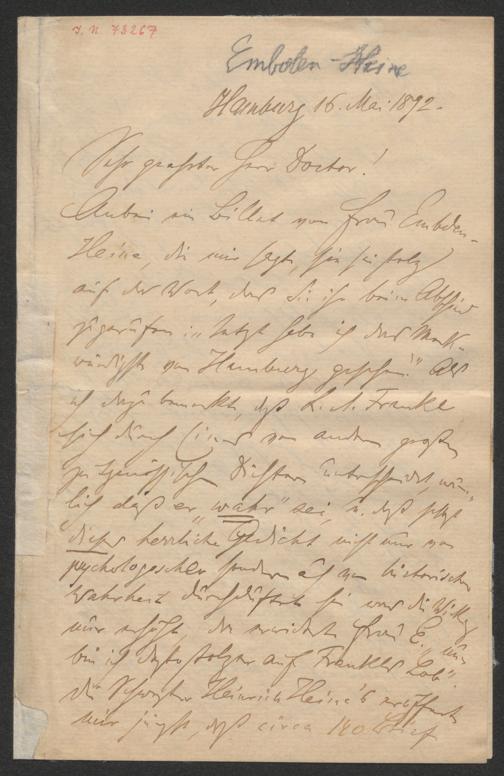 I. N. 73267
Embden-Heine
Hamburg 16. Mai 1892.
Sehr geehrter Herr Doctor!
Anbei ein Billet von Frau Embden-
Heine, die mir sagte sie sei stolz
auf das Wort, das Sie ihr beim Abschied
zugerufen: "Jetzt habe ich das Merk-
würdigste von Hamburg gesehen!" Als
ich dazu bemerkte, daß L. A. Frankl
sich durch von andern großen
zeitgenössischen Dichtern unterscheidet, näm-
lich daß er "wahr" sei, u. daß
dieses herrliche Gedicht nicht nur von
psychologischer sondern auch von historischer
Wahrheit durchduftet sei was die Wirkung
nur erhöht, da erwidert Frau E. "nun
bin ich desto stolzer auf Frankls Lob".
Die Schwester Heinrich Heine's eröffnete
mir jüngst, daß circa 140 Brief